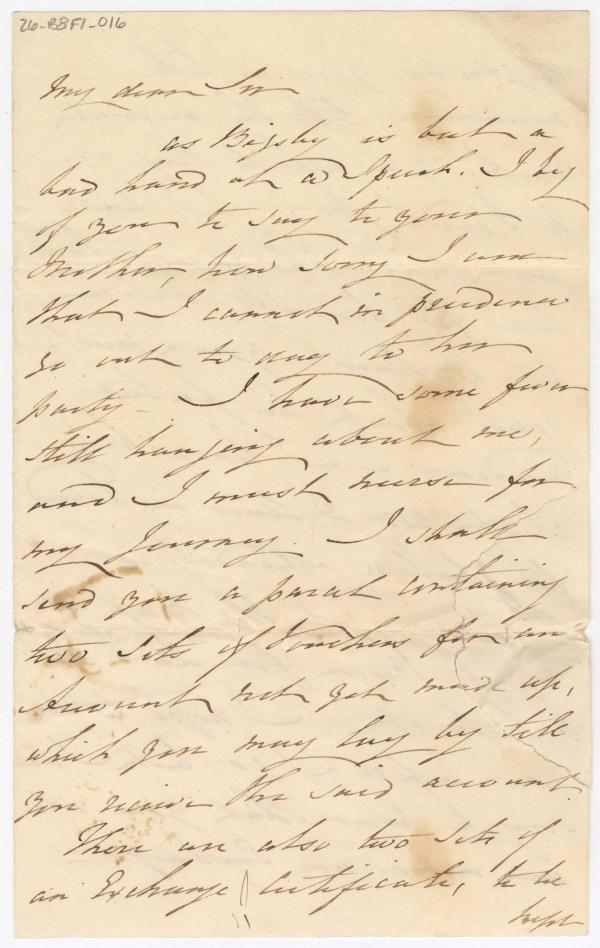 26-B8F1-016
My dear Sir
as Bigsby is but a
bad hand at a Speech. I beg
of you to say to your
Mother, how sorry I am
that I cannot in prudence
go out to day to her
party – I have some fever
still hanging about me,
and I must nurse for
my Journey. I shall
send you a parcel containing
two sets of Vouchers for an
Account not yet made up,
which you may lay by till
you receive the said account.
There are also two sets of
an Exchange Certificate, to be
kept